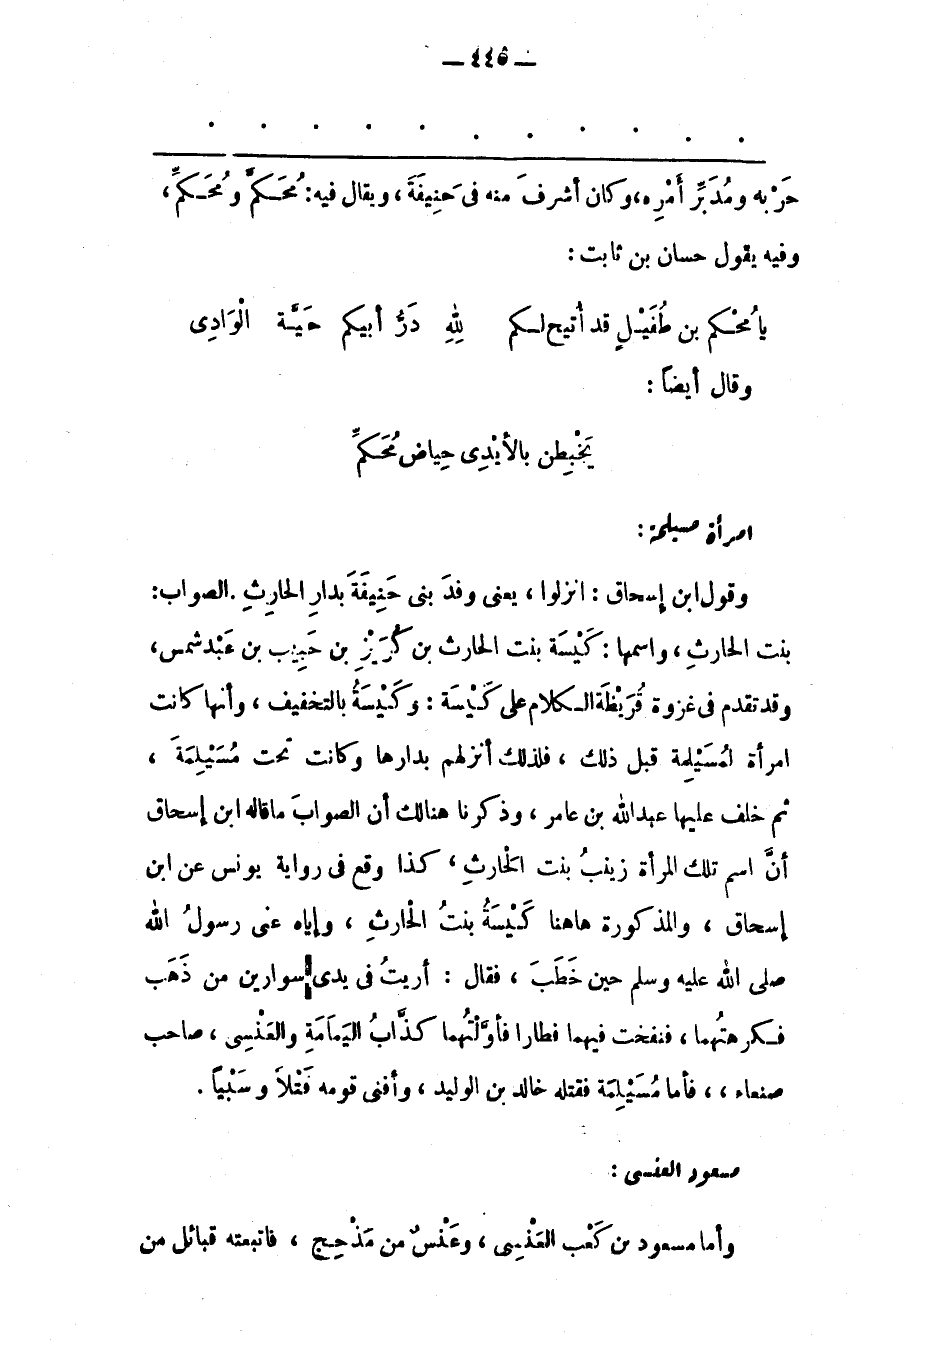 — ٤٤٥ —
حَرْبه ومُدَبِّرَ أَمْرِه، وكان أشرفَ منه فى حَنِيفَةَ ، ويقال فيه: مُحَكَّم ومُحَكِّم ،
وفيه يقول حسان بن ثابت :
يا مُحْكم بن طُفَيْلٍ قد أُتيح لكم لِلهِ دَرُّ أبيكم حَيَّة الْوَادِى
وقال أيضاً :
يَخْبِطن بالأيْدِى حِياض مُحَكِّم
امرأة مسيلمة :
وقول ابن إسحاق : انزلوا ، يعنى وفدَ بنى حَنِيفَةَ بدارِ الحارِثِ . الصواب:
بنت الحارثِ ، واسمها : كَيِّسَة بنت الحارث بن كُرَيْزِ بن حَبِيب بن عَبْد شمس ،
وقد تقدم فى غزوة قُرَيْظَة الكلام على كَيِّسَة : وكَيْسَةُ بالتخفيف ، وأنها كانت
امرأة لمُسَيْلِمة قبل ذلك ، فلذلك أنزلهم بدارها وكانت تحت مُسَيْلِمَةَ ،
ثم خلف عليها عبد الله بن عامر ، وذكرنا هنالك أن الصوابَ ما قاله ابن إسحاق
أنَّ اسم تلك المرأة زينبُ بنت الحارثِ ، كذا وقع فى رواية يونس عن ابن
إسحاق ، والمذكورة هاهنا كَيِّسَةُ بنتُ الْحارثِ ، وإياه عنى رسولُ الله
صلى الله عليه وسلم حين خَطَبَ ، فقال : أريتُ فى يدى سوارين من ذَهَب
فكرهتُهما ، فنفخت فيهما فطارا فأوَّلْتُهما كذَّابُ اليَمَامَةِ والعَنْسِى ، صاحب
صنعاء ، ، فأما مُسَيْلِمَة فقتله خالد بن الوليد ، وأفنى قومه قَتْلاً وسَبْياً .
مسعود العنسى :
وأما مسعود بن كَعْب العَنْسِى ، وعَنْسٌ من مَذْحِجٍ ، فاتبعته قبائل من